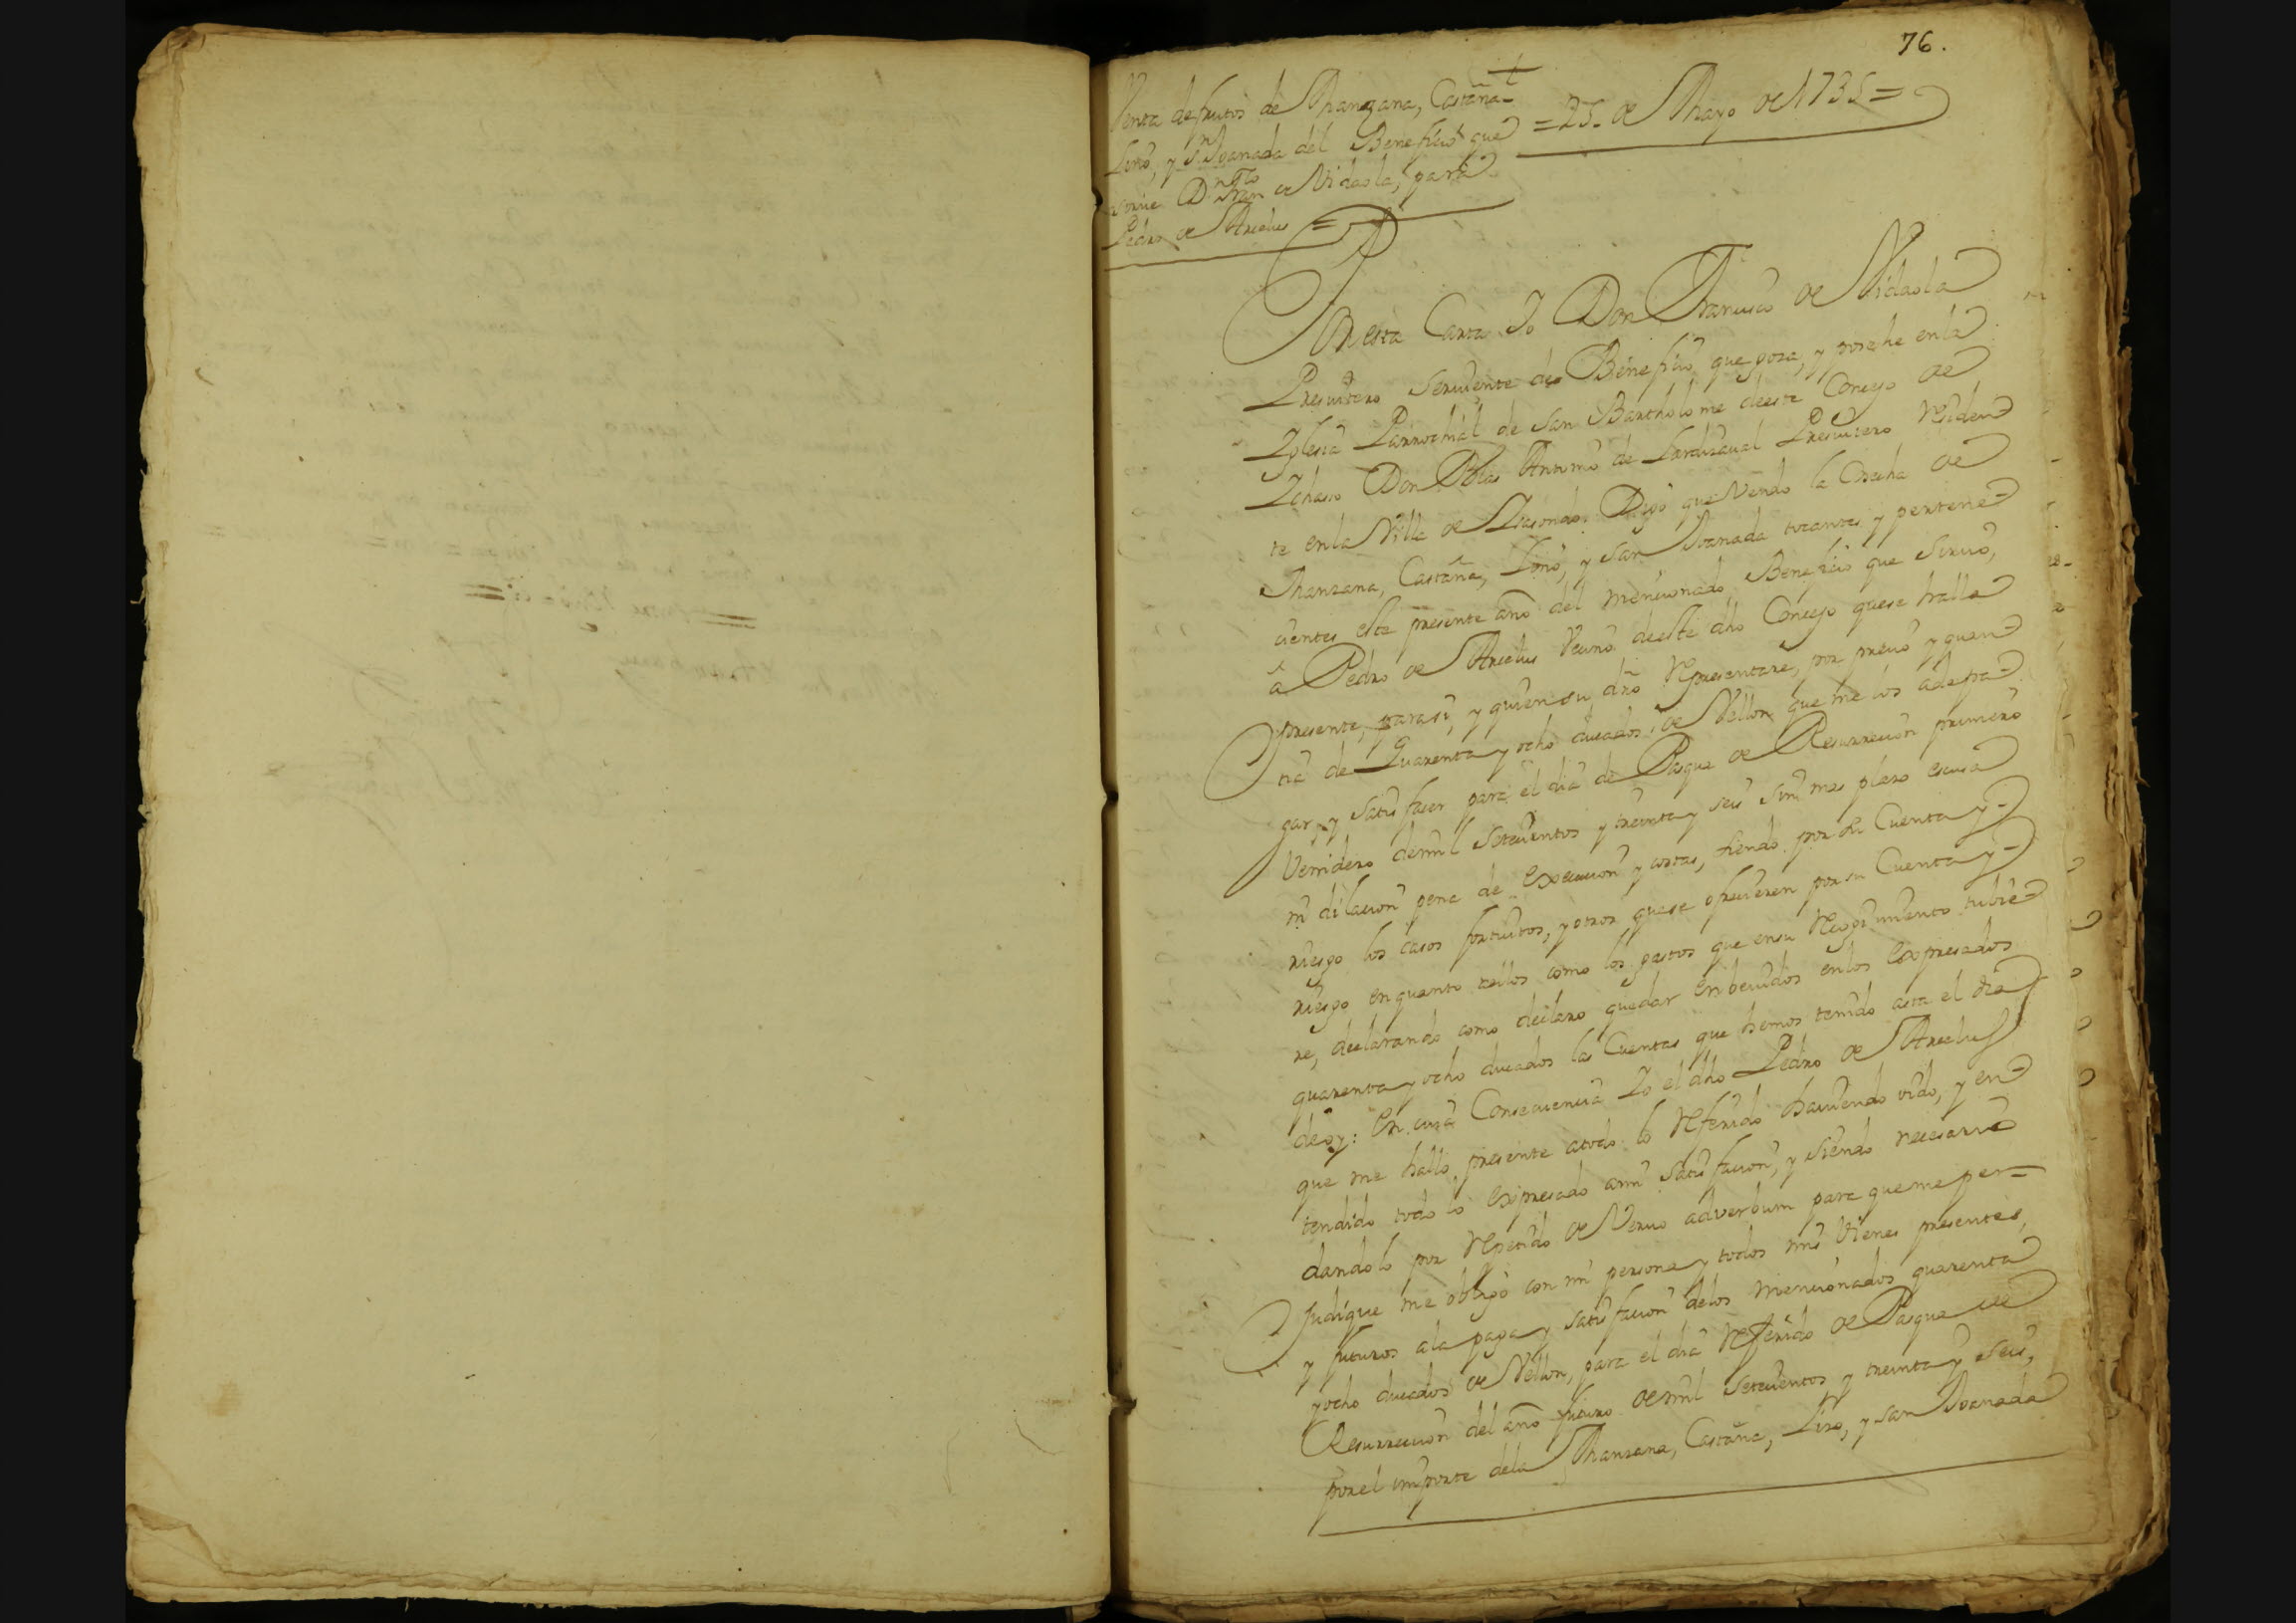 76.
Venta de frutos de Manzana, Castaña=
Lino, y Sn Juanada del Beneficio que
sirue Dn Franco de Vidaola, para
Pedro de Arcelus =
=25. de Mayo de 1735=
En esta Carta Yo Don Francisco de Vidaola
Presuitero Seruiente del Beneficio, que goza, y posehe enla
Yglesia Parrochial de San Bartholome deeste Concejo de
Ychaso Don Blas Antonio de Lardizaual Presuitero Residen
te enla Villa de Digo que Vendo la Cosecha de
Manzana, Castaña, Lino, y San Juanada tocantes y pertene
cientes este presente año del mencionado Beneficio que Siruo,
â Pedro de Arcelus Vecino deeste dho Concejo quese halla
presente, parasi, y quien su dro Representare, por precio y quan
tia de Quarenta y ocho ducados de Vellon que me los ade pa
gar, y Satisfaser para el dia de Pasqua de Resurrecion primero
Venidero demil Setecientos y treinta y seis sin mas plazo escusa
ni dilacion pena de Execucion y costas, siendo por su Cuenta y-
riesgo los casos fortuitos, y otros quese ofrecieren por su Cuenta y-
riesgo en quanto aellos como los gastos que ensu Recogimiento tubie
re, declarando como declaro quedar enbeuidos enlos Expresados
quarenta y ocho ducados las Cuentas que hemos tenido asta el dia
deoy: En cuia Consecuencia Yo el dho Pedro de Arcelus
que me hallo presente atodo lo Referido hauiendo oido, y en
tendido todo lo Expresado ami Satisfacion, y siendo necesario
dandolo por Repetido de Veruo adverbum para queme per=
judique me obligo con mi persona y todos mis vienes presentes,
y futuros ala paga y satisfacion delos mencionados quarenta
y ocho ducados de Vellon, para el dia Referido de Pasqua de
Resurreccion del año futuro de mil Setecientos y treinta y Seis,
porel importe dela Manzana, Castaña, Lino, y san Juanada